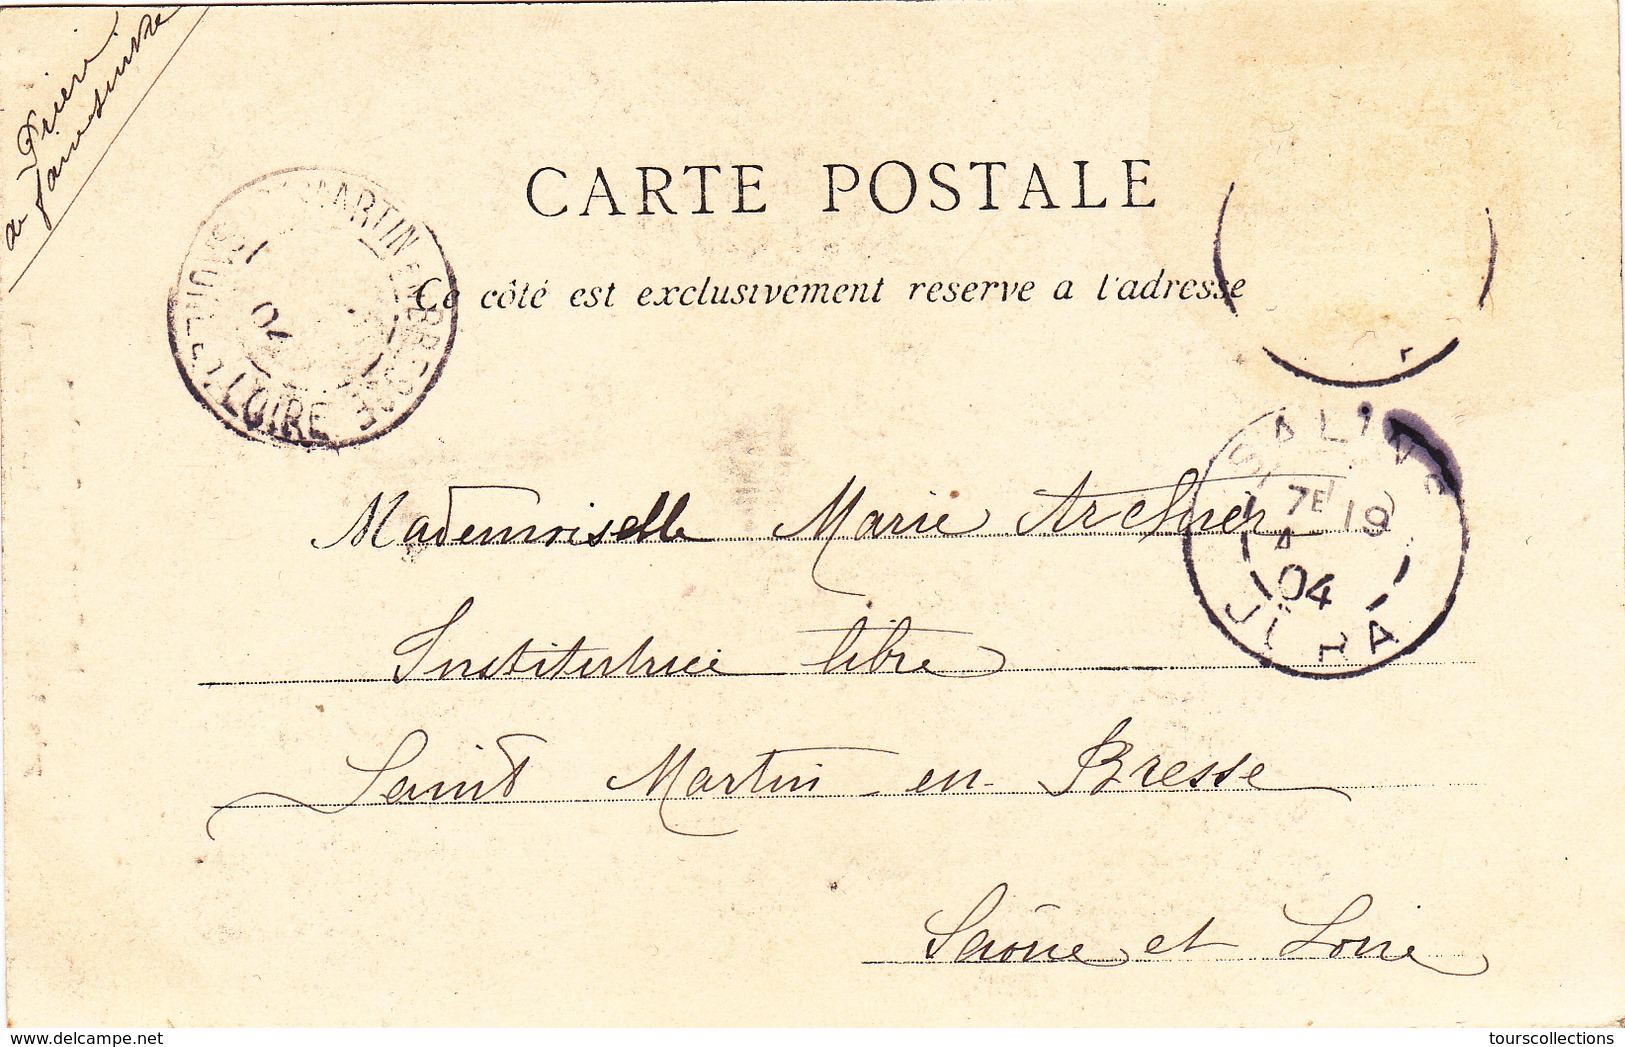 Prière
de faire suivre
CARTE POSTALE
Ce côté est exclusivement reserve a l'adresse
MARTIN EN BRESSE
LOIRE
04
SALINS
7E 19
04
JURA
Mademoiselle Marie Archner
Institutrice libre
Saint Martin en Bresse
Saône et Loire
delcampe.net
tourscollections